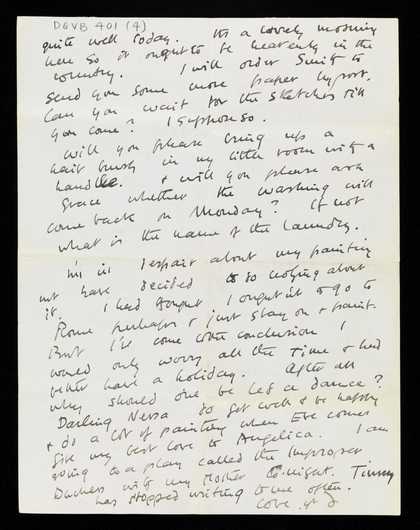 DGVB 401 (4)
quite well today. It's a lovely morning
here so it ought to be heavenly in the
country. I will order Smith to
send you some more paper by post.
Can you wait for the sketches till
you come? I suppose so.
Will you please bring up a
hair brush in my little room with a
handle. & will you please ask
Grace whether the washing will
come back on Monday? If not
what is the name of the laundry.
I despair about my painting
but have decided to do nothing about
it. I had thought I ought to go to
Rome perhaps & just stay on & paint.
But I've come to the conclusion I
would only worry all the time & had
better have a holiday. After all
why should one be led a dance?
Darling Nessa do get well & be happy
& do a lot of painting when Eve comes
Give my best love to Angelica. I am
going to a play called the Improper
Duchess with my Mother to-night. Timmy
has stopped writing to me often.
Love